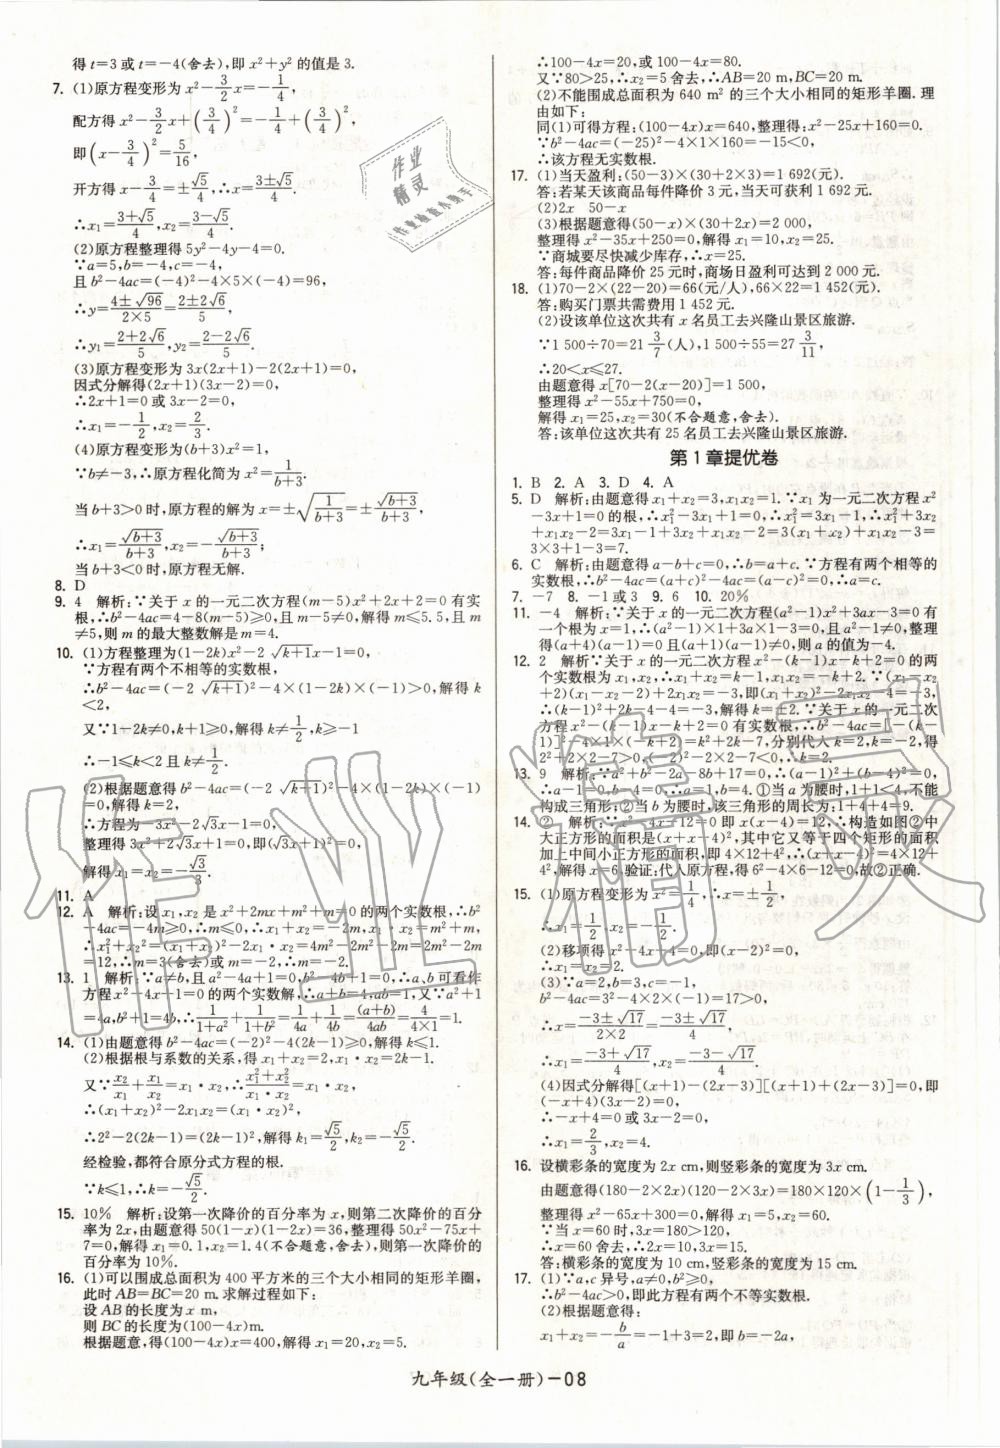 得 t=3 或 t=-4(舍去),即 x²+y² 的值是 3.
7. (1)原方程变形为 x²-3/2x=-1/4,
配方得 x²-3/2x+(3/4)²=-1/4+(3/4)²,
即(x-3/4)²=5/16,
开方得 x-3/4=±√5/4,∴x=(3±√5)/4.
∴x₁=(3+√5)/4,x₂=(3-√5)/4.
(2)原方程整理得 5y²-4y-4=0.
∵a=5,b=-4,c=-4,
且 b²-4ac=(-4)²-4×5×(-4)=96,
∴y=(4±√96)/(2×5)=(2±2√6)/5,
∴y₁=(2+2√6)/5,y₂=(2-2√6)/5.
(3)原方程变形为 3x(2x+1)-2(2x+1)=0.
因式分解得(2x+1)(3x-2)=0,
∴2x+1=0 或 3x-2=0,
∴x₁=-1/2,x₂=2/3.
(4)原方程变形为(b+3)x²=1.
∵b≠-3,∴原方程化简为 x²=1/(b+3).
当 b+3>0 时,原方程的解为 x=±√(1/(b+3))=±√(b+3)/(b+3),
∴x₁=√(b+3)/(b+3),x₂=-√(b+3)/(b+3);
当 b+3<0 时,原方程无解.
8. D
9. 4 解析:∵关于 x 的一元二次方程(m-5)x²+2x+2=0 有实
根,∴b²-4ac=4-8(m-5)≥0,且 m-5≠0,解得 m≤5.5,且 m
≠5,则 m 的最大整数解是 m=4.
10. (1)方程整理为(1-2k)x²-2√(k+1)x-1=0,
∵方程有两个不相等的实数根,
∴b²-4ac=(-2√(k+1))²-4×(1-2k)×(-1)>0,解得 k
<2,
又∵1-2k≠0,k+1≥0,解得 k≠1/2,k≥-1
∴-1≤k<2 且 k≠1/2.
(2)根据题意得 b²-4ac=(-2√(k+1))²-4×(1-2k)×(-1)
=0,解得 k=2,
∴方程为-3x²-2√3x-1=0,
整理得 3x²+2√3x+1=0,即(√3x+1)²=0,
解得 x₁=x₂=-√3/3.
11. A
12. A 解析:设 x₁,x₂ 是 x²+2mx+m²+m=0 的两个实数根,∴b²
-4ac=-4m≥0,∴m≤0,∴x₁+x₂=-2m,x₁·x₂=m²+m,
∴x₁²+x₂²=(x₁+x₂)²-2x₁·x₂=4m²-2m²-2m=2m²-2m
=12,∴m=3(舍去)或 m=-2,∴m=-2.
13. 1 解析:∵a≠b,且 a²-4a+1=0,b²-4b+1=0,∴a、b 可看作
方程 x²-4x+1=0 的两个实数解,∴a+b=4,ab=1,又∵a²+1
=4a,b²+1=4b,∴1/(1+a²)+1/(1+b²)=1/4a+1/4b=(a+b)/4ab=4/(4×1)=1.
14. (1)由题意得 b²-4ac=(-2)²-4(2k-1)≥0,解得 k≤1.
(2)根据根与系数的关系,得 x₁+x₂=2,x₁·x₂=2k-1.
又∵x₂/x₁+x₁/x₂=x₁·x₂,∴(x₁²+x₂²)/(x₁·x₂)=x₁·x₂,
∴(x₁+x₂)²-2x₁x₂=(x₁·x₂)²,
∴2²-2(2k-1)=(2k-1)²,解得 k₁=√5/2,k₂=-√5/2.
经检验,都符合原分式方程的根.
∵k≤1,∴k=-√5/2.
15. 10% 解析:设第一次降价的百分率为 x,则第二次降价的百分
率为 2x,由题意得 50(1-x)(1-2x)=36,整理得 50x²-75x+
7=0,解得 x₁=0.1,x₂=1.4(不合题意,舍去),则第一次降价的
百分率为 10%.
16. (1)可以围成总面积为 400 平方米的三个大小相同的矩形羊圈,
此时 AB=BC=20 m. 求解过程如下:
设 AB 的长度为 x m,
则 BC 的长度为(100-4x)m.
根据题意,得(100-4x)x=400,解得 x₁=20,x₂=5.
∴100-4x=20,或 100-4x=80.
又∵80>25,∴x₂=5 舍去,∴AB=20 m,BC=20 m.
(2)不能围成总面积为 640 m² 的三个大小相同的矩形羊圈. 理
由如下:
同(1)可得方程:(100-4x)x=640,整理得:x²-25x+160=0.
∵b²-4ac=(-25)²-4×1×160=-15<0,
∴该方程无实数根.
17. (1)当天盈利:(50-3)×(30+2×3)=1 692(元).
答:若某天该商品每件降价 3 元,当天可获利 1 692 元.
(2)2x 50-x
(3)根据题意得(50-x)×(30+2x)=2 000,
整理得 x²-35x+250=0,解得 x₁=10,x₂=25.
∵商城要尽快减少库存,∴x=25.
答:每件商品降价 25 元时,商场日盈利可达到 2 000 元.
18. (1)70-2×(22-20)=66(元/人),66×22=1 452(元).
答:购买门票共需费用 1 452 元.
(2)设该单位这次共有 x 名员工去兴隆山景区旅游.
∵1 500÷70=21 3/7(人),1 500÷55=27 3/11,
∴20<x≤27.
由题意得 x[70-2(x-20)]=1 500,
整理得 x²-55x+750=0,
解得 x₁=25,x₂=30(不合题意,舍去).
答:该单位这次共有 25 名员工去兴隆山景区旅游.
第 1 章提优卷
1. B 2. A 3. D 4. A
5. D 解析:由题意得 x₁+x₂=3,x₁x₂=1. ∵x₁ 为一元二次方程 x²
-3x+1=0 的根,∴x₁²-3x₁+1=0,∴x₁²=3x₁-1,∴x₁²+3x₂
+x₁x₂-2=3x₁-1+3x₂+x₁x₂-2=3(x₁+x₂)+x₁x₂-3=
3×3+1-3=7.
6. C 解析:由题意得 a-b+c=0,∴b=a+c. ∵方程有两个相等的
实数根,∴b²-4ac=(a+c)²-4ac=(a-c)²=0,∴a=c.
7. -7 8. -1 或 3 9. 6 10. 20%
11. -4 解析:∵关于 x 的一元二次方程(a²-1)x²+3ax-3=0 有
一个根为 x=1,∴(a²-1)×1+3a×1-3=0,且 a²-1≠0,整理
得(a+4)(a-1)=0 且(a+1)(a-1)≠0,则 a 的值为-4.
12. 2 解析∵关于 x 的一元二次方程 x²-(k-1)x-k+2=0 的两
个实数根为 x₁,x₂,∴x₁+x₂=k-1,x₁x₂=-k+2. ∵(x₁-x₂
+2)(x₁-x₂-2)+2x₁x₂=-3,即(x₁+x₂)²-2x₁x₂-4=-3,
∴(k-1)²+2k-4-4=-3,解得 k=±2. ∵关于 x 的一元二次
方程 x²-(k-1)x-k+2=0 有实数根,∴b²-4ac=[-(k-
1)]²-4×1×(-k+2)=k²+2k-7,分别代入 k=2,k=-2,得
2²+2×2-7>0,(-2)²-2×2-7<0,∴k=2.
13. 9 解析:∵a²+b²-2a-8b+17=0,∴(a-1)²+(b-4)²=0,
∴a-1=0,b-4=0,∴a=1,b=4. ①当 a 为腰时,1+1<4,不能
构成三角形;②当 b 为腰时,该三角形的周长为:1+4+4=9.
14. ② 解析:∵x²-4x-12=0 即 x(x-4)=12,∴构造如图②中
大正方形的面积是(x+x-4)²,其中它又等于四个矩形的面积
加上中间小正方形的面积,即 4×12+4²,∴(x+x-4)²=4×12+
4²,解得 x=6. 验证:代入原方程,得 6²-4×6-12=0,故②正确.
15. (1)原方程变形为 x²=1/4,∴x=±1/2,
∴x₁=1/2,x₂=-1/2.
(2)移项得 x²-4x+4=0,即(x-2)²=0,
∴x₁=x₂=2.
(3)∵a=2,b=3,c=-1,
b²-4ac=3²-4×2×(-1)=17>0,
∴x=(-3±√17)/(2×2)=(-3±√17)/4,
∴x₁=(-3+√17)/4,x₂=(-3-√17)/4.
(4)因式分解得[(x+1)-(2x-3)][(x+1)+(2x-3)]=0,即
(-x+4)(3x-2)=0,
∴-x+4=0 或 3x-2=0,
∴x₁=2/3,x₂=4.
16. 设横彩条的宽度为 2x cm,则竖彩条的宽度为 3x cm.
由题意得(180-2×2x)(120-2×3x)=180×120×(1-1/3),
整理得 x²-65x+300=0,解得 x₁=5,x₂=60.
∵当 x=60 时,3x=180>120,
∴x=60 舍去,∴2x=10,3x=15.
答:横彩条的宽度为 10 cm,竖彩条的宽度为 15 cm.
17. (1)∵a,c 异号,a≠0,b²≥0,
∴b²-4ac>0,即此方程有两个不等实数根.
(2)根据题意得:
x₁+x₂=-b/a=-1+3=2,即 b=-2a,
九年级(全一册)-08
作业精灵